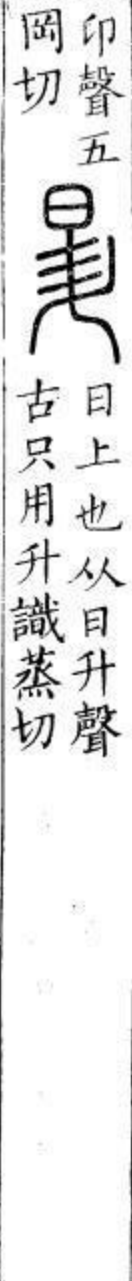 卬聲五
岡切
昇
日上也从日升聲
古只用升識蒸切